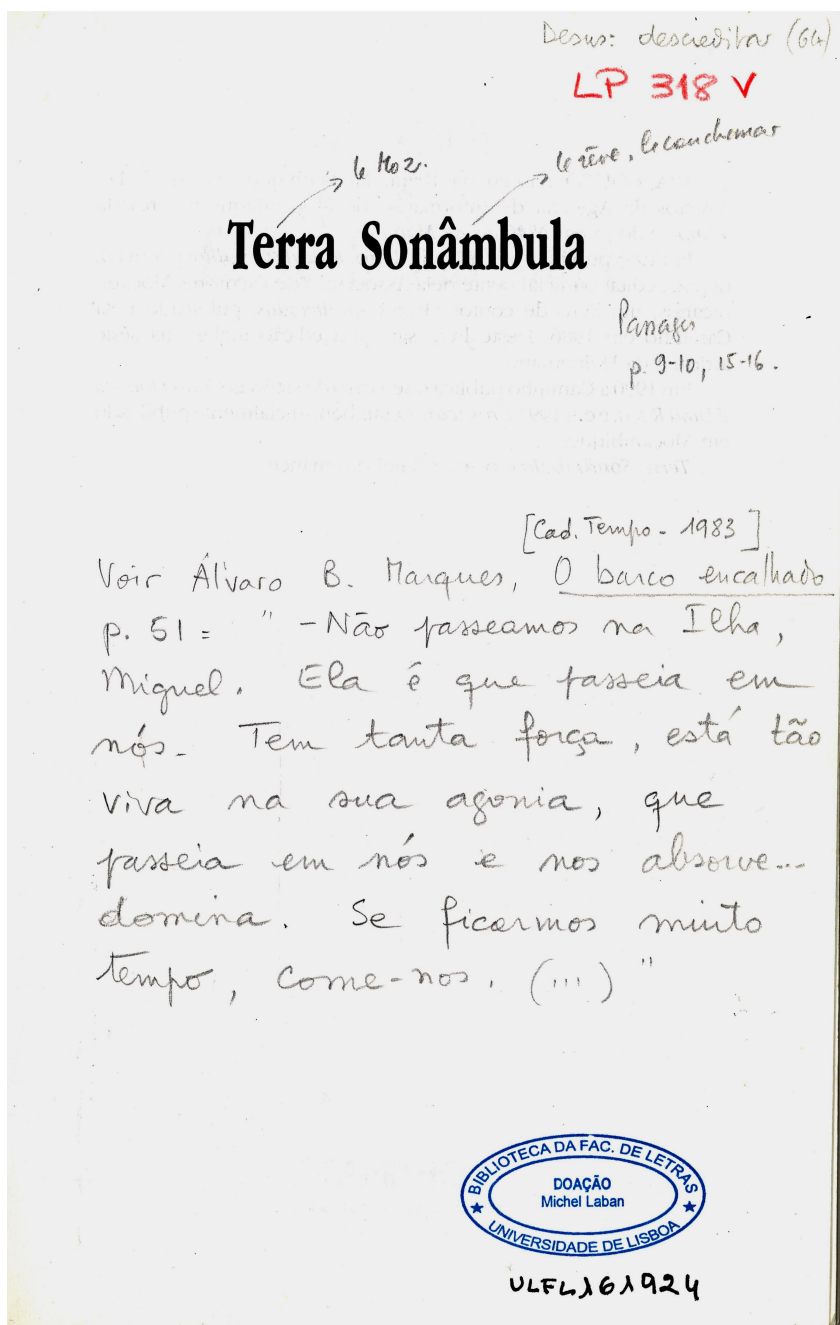 Desus: descreditar (64)
LP 318 V
le Moz.
le rêve, le cauchemar
Terra Sonâmbula
Passages
p. 9-10, 15-16.
[Cad. Tempo - 1983]
Voir Álvaro B. Marques, O barco encalhado
p. 51 = " - Não passeamos na Ilha,
Miguel. Ela é que passeia em
nós. Tem tanta força, está tão
viva na sua agonia, que
passeia em nós e nos absorve...
domina. Se ficarmos muito
tempo, come-nos. (...) "
BIBLIOTECA DA FAC. DE LETRAS
DOAÇÃO
Michel Laban
UNIVERSIDADE DE LISBOA
ULFL161924